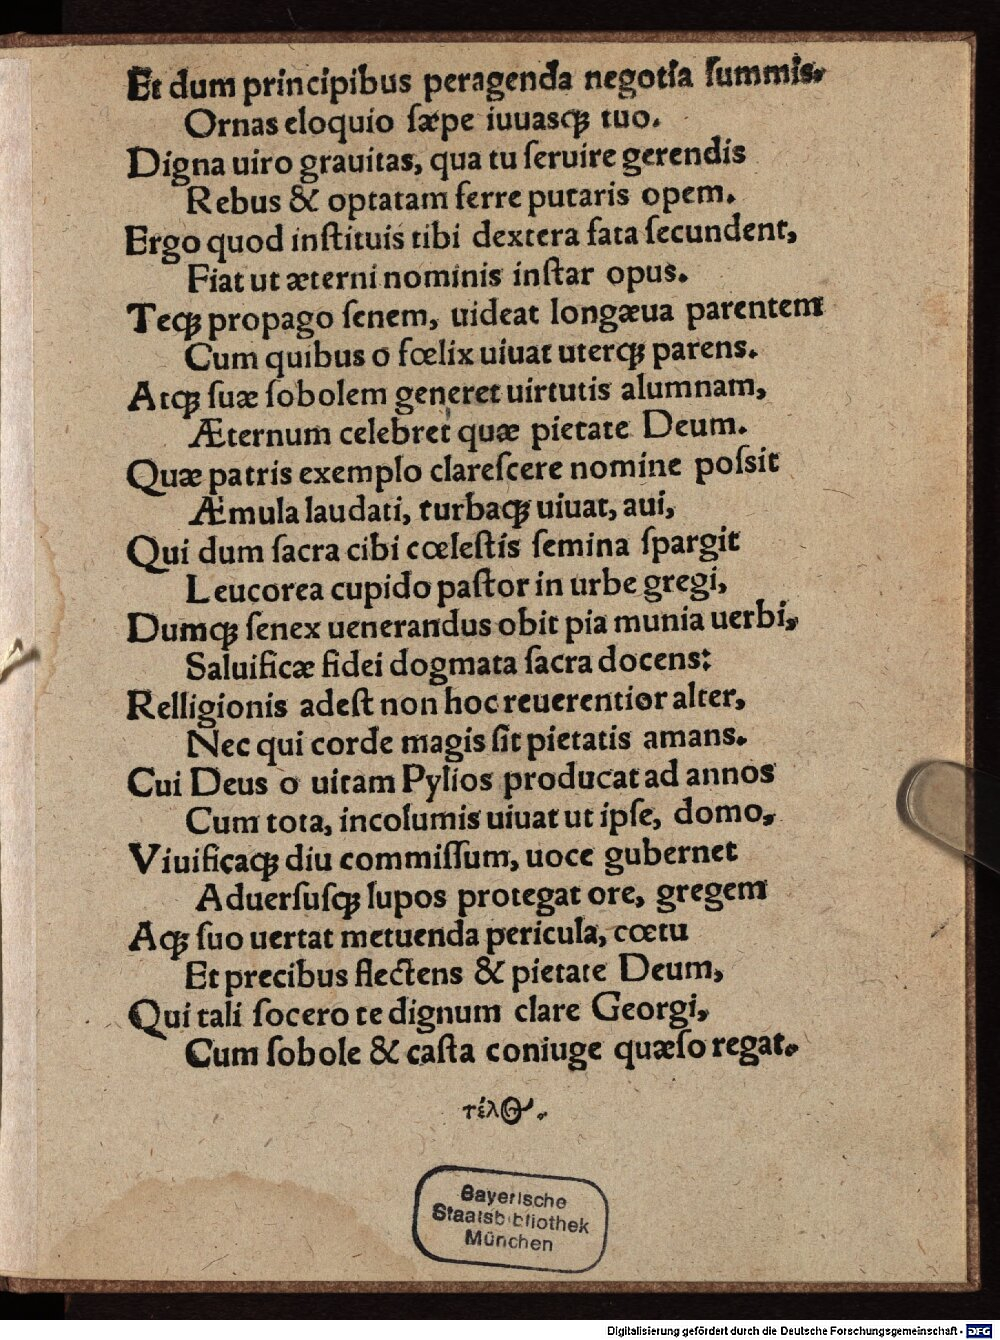 Et dum principibus peragenda negotia ſummis.
Ornas eloquio ſæpe iuuasqꝫ tuo.
Digna uiro grauitas, qua tu ſeruire gerendis
Rebus & optatam ferre putaris opem.
Ergo quod inſtituis tibi dextera fata ſecundent,
Fiat ut æterni nominis inſtar opus.
Teqꝫ propago ſenem, uideat longæua parentem
Cum quibus o fœlix uiuat uterqꝫ parens.
Atqꝫ ſuæ ſobolem generet uirtutis alumnam,
Æternum celebret quæ pietate Deum.
Quæ patris exemplo clareſcere nomine poſsit
Æmula laudati, turbaqꝫ uiuat, aui,
Qui dum ſacra cibi cœleſtis ſemina ſpargit
Leucorea cupido paſtor in urbe gregi,
Dumqꝫ ſenex uenerandus obit pia munia uerbi,
Saluificæ fidei dogmata ſacra docens:
Relligionis adeſt non hoc reuerentior alter,
Nec qui corde magis ſit pietatis amans.
Cui Deus o uitam Pylios producat ad annos
Cum tota, incolumis uiuat ut ipſe, domo,
Viuificaqꝫ diu commiſſum, uoce gubernet
Aduerſuſqꝫ lupos protegat ore, gregem
Aqꝫ ſuo uertat metuenda pericula, cœtu
Et precibus flectens & pietate Deum,
Qui tali ſocero te dignum clare Georgi,
Cum ſobole & caſta coniuge quæſo regat.
τέλος.
Bayerische
Staatsbibliothek
München
Digitalisierung gefördert durch die Deutsche Forschungsgemeinschaft - DFG